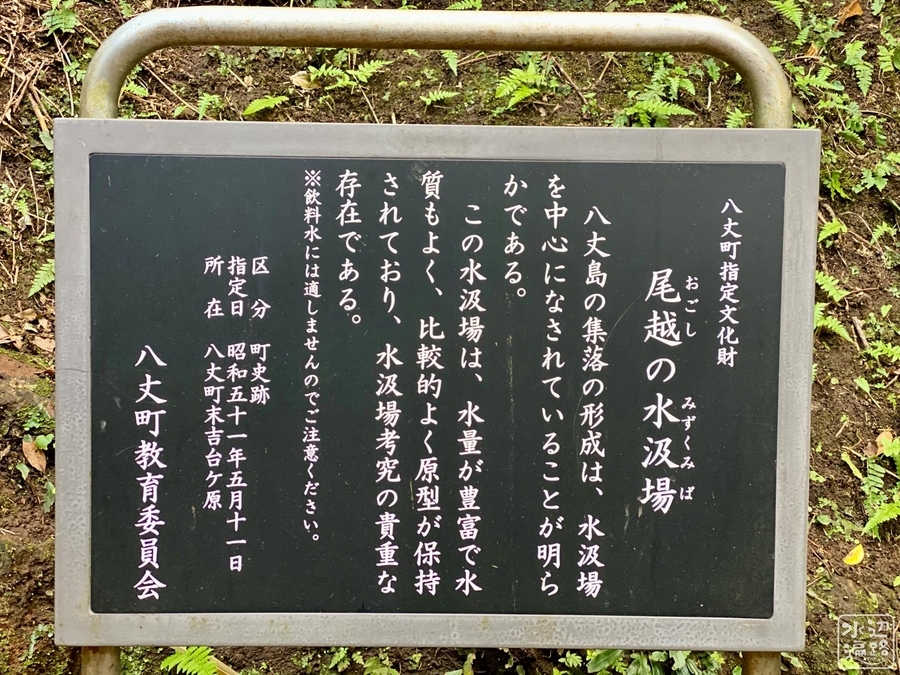 八丈町指定文化財
尾越の水汲場
おごし みずくみ ば
八丈島の集落の形成は、水汲場
を中心になされていることが明ら
かである。
この水汲場は、水量が豊富で水
質もよく、比較的よく原型が保持
されており、水汲場考究の貴重な
存在である。
※飲料水には適しませんのでご注意ください。
区 分 町史跡
指定日 昭和五十一年五月十一日
所 在 八丈町末吉台ケ原
八丈町教育委員会